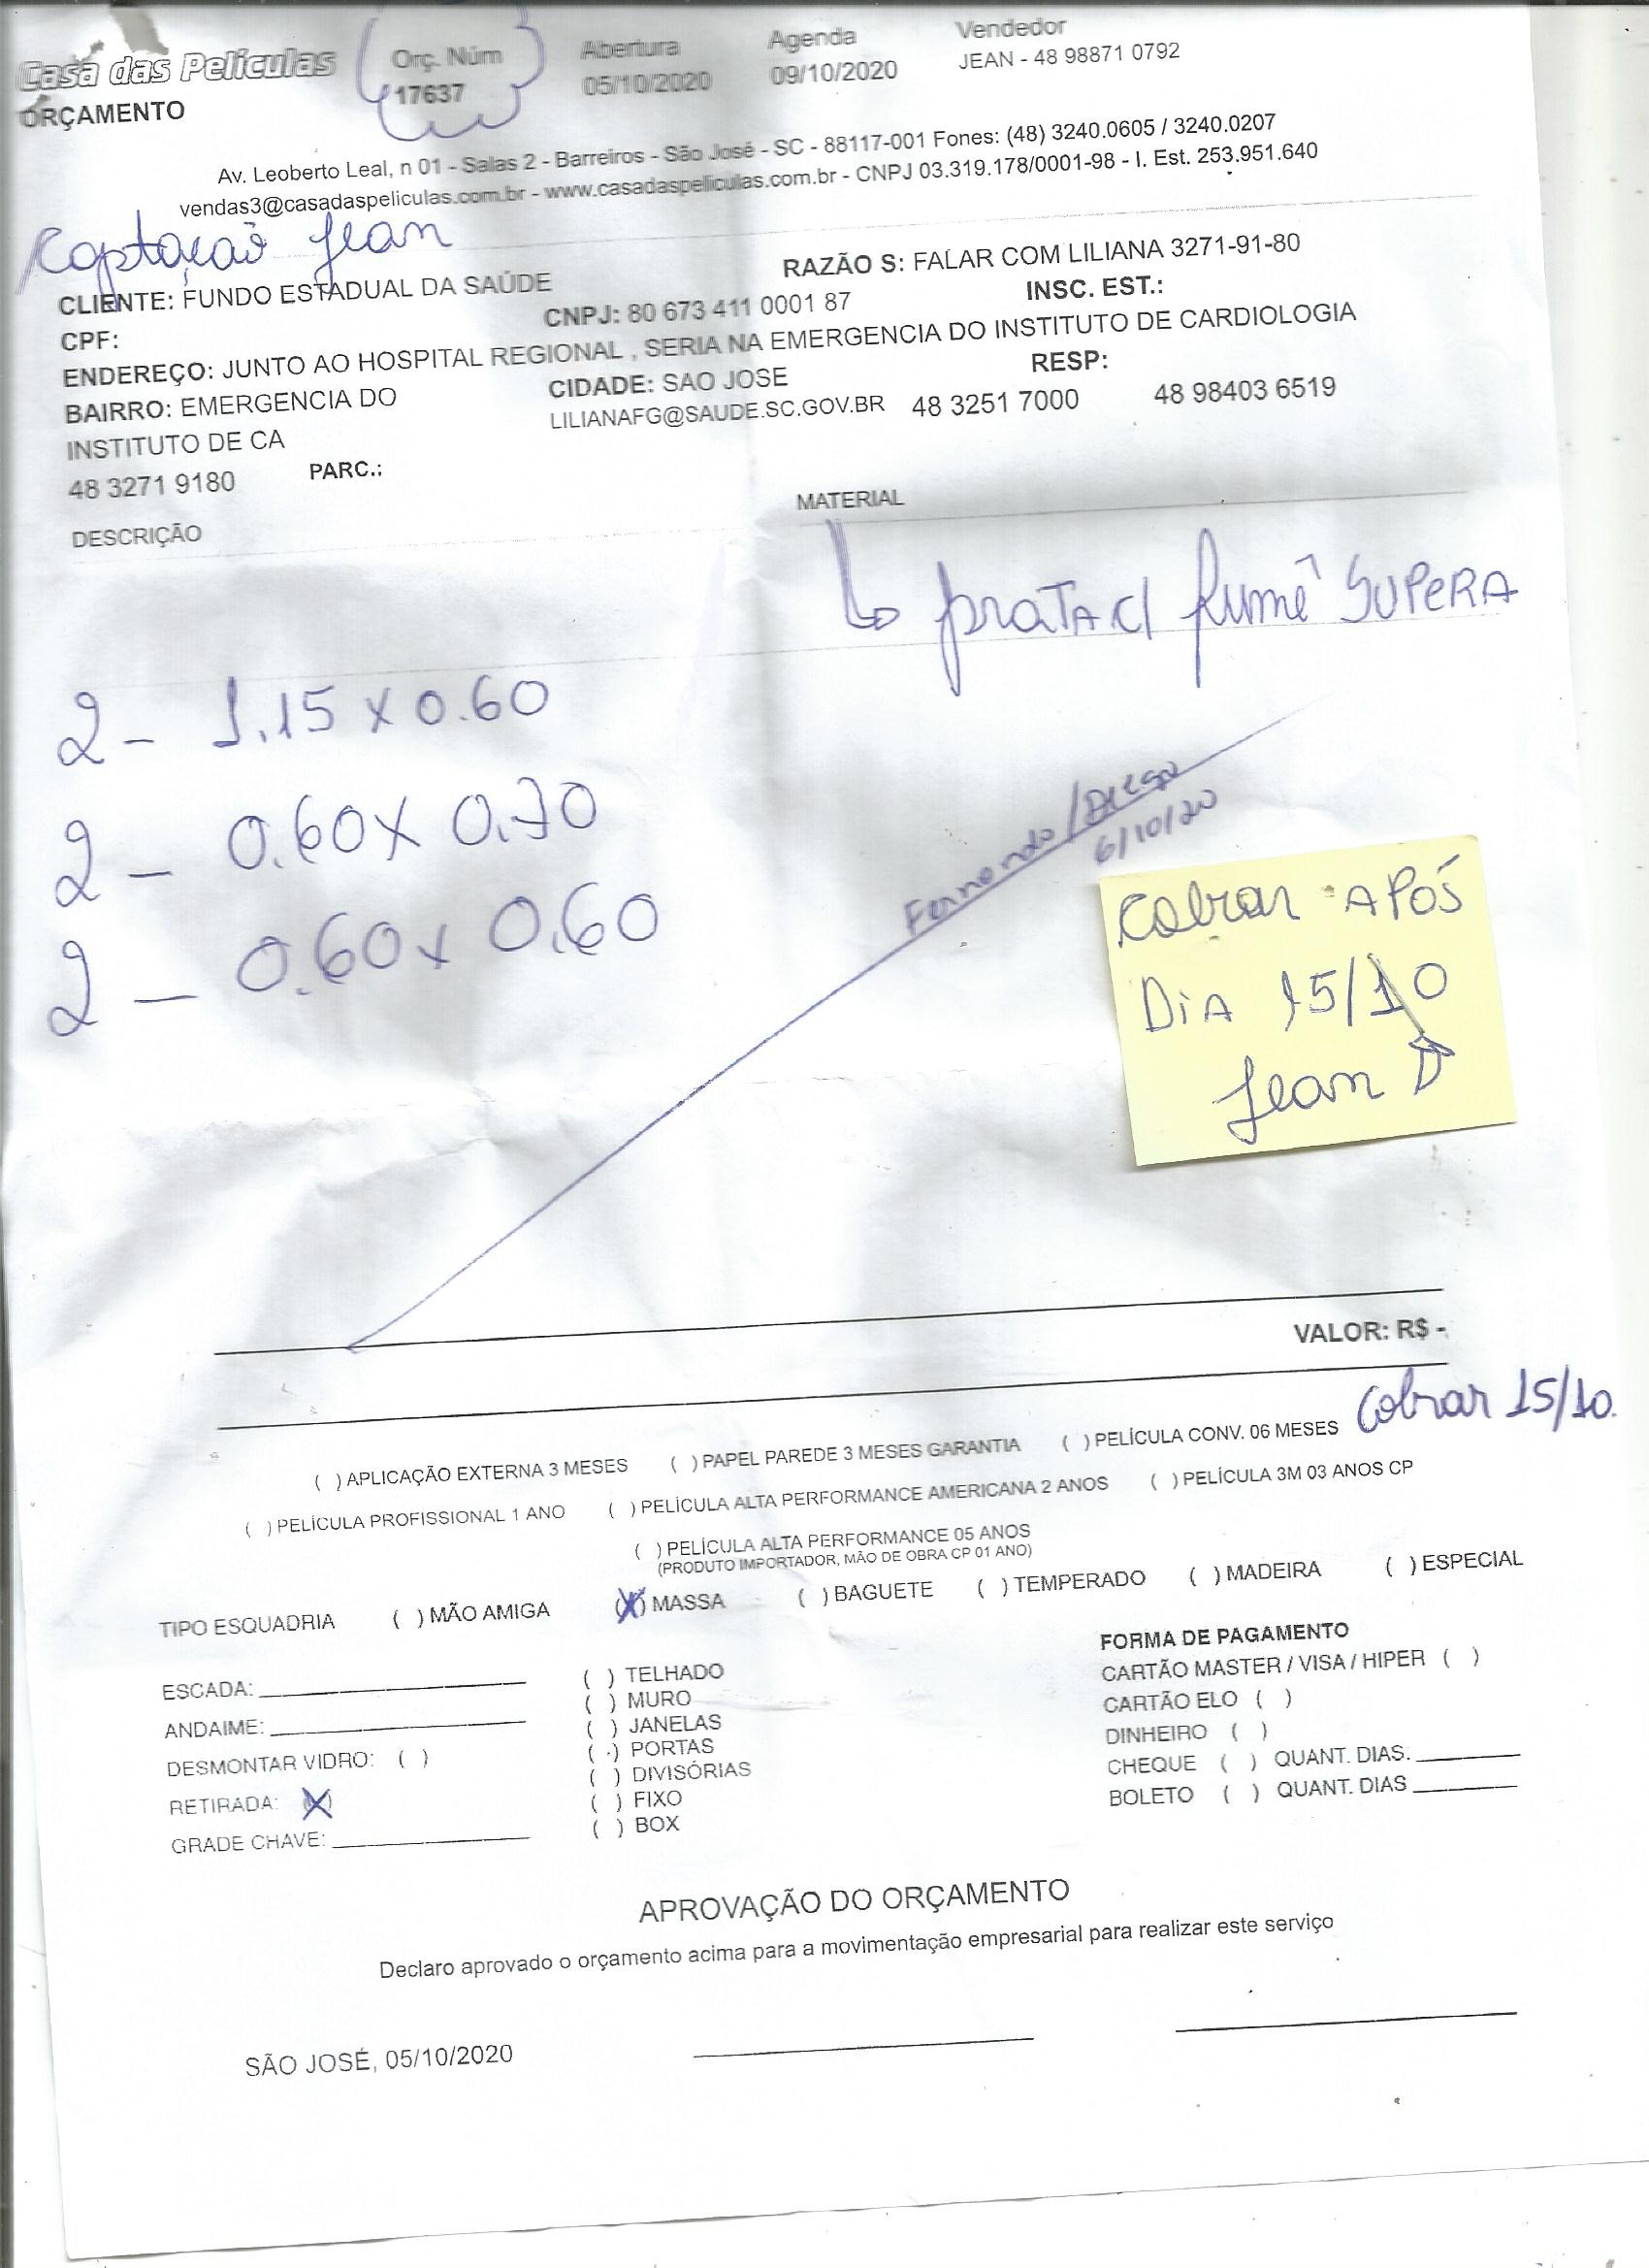 Casa das Películas
ORÇAMENTO
Orç. Núm
17637
Abertura
05/10/2020
Agenda
09/10/2020
Vendedor
JEAN - 48 98871 0792
Av. Leoberto Leal, n 01 - Salas 2 - Barreiros - São José - SC - 88117-001 Fones: (48) 3240.0605 / 3240.0207
vendas3@casadaspeliculas.com.br - www.casadaspelliculas.com.br - CNPJ 03.319.178/0001-98 - I. Est. 253.951.640
Captação Jean
CLIENTE: FUNDO ESTADUAL DA SAÚDE
RAZÃO S: FALAR COM LILIANA 3271-91-80
CPF:
CNPJ: 80 673 411 0001 87
INSC. EST.:
ENDEREÇO: JUNTO AO HOSPITAL REGIONAL , SERIA NA EMERGENCIA DO INSTITUTO DE CARDIOLOGIA
BAIRRO: EMERGENCIA DO
INSTITUTO DE CA
CIDADE: SAO JOSE
RESP:
LILIANAFG@SAUDE.SC.GOV.BR 48 3251 7000 48 98403 6519
48 3271 9180 PARC.:
DESCRIÇÃO
MATERIAL
prata c/ fumê SUPERA
2 - 1.15 x 0.60
2 - 0.60 x 0.70
2 - 0.60 x 0.60
Fernando/Diego
6/10/20
Cobrar APÓS
DIA 15/10
Jean
VALOR: R$ -
Cobrar 15/10.
( ) APLICAÇÃO EXTERNA 3 MESES ( ) PAPEL PAREDE 3 MESES GARANTIA ( ) PELÍCULA CONV. 06 MESES
( ) PELÍCULA PROFISSIONAL 1 ANO ( ) PELÍCULA ALTA PERFORMANCE AMERICANA 2 ANOS ( ) PELÍCULA 3M 03 ANOS CP
( ) PELÍCULA ALTA PERFORMANCE 05 ANOS
(PRODUTO IMPORTADOR, MÃO DE OBRA CP 01 ANO)
TIPO ESQUADRIA ( ) MÃO AMIGA (X) MASSA ( ) BAGUETE ( ) TEMPERADO ( ) MADEIRA ( ) ESPECIAL
ESCADA:
ANDAIME:
DESMONTAR VIDRO: ( )
RETIRADA: (X)
GRADE CHAVE:
( ) TELHADO
( ) MURO
( ) JANELAS
( ) PORTAS
( ) DIVISÓRIAS
( ) FIXO
( ) BOX
FORMA DE PAGAMENTO
CARTÃO MASTER / VISA / HIPER ( )
CARTÃO ELO ( )
DINHEIRO ( )
CHEQUE ( ) QUANT. DIAS:
BOLETO ( ) QUANT. DIAS
APROVAÇÃO DO ORÇAMENTO
Declaro aprovado o orçamento acima para a movimentação empresarial para realizar este serviço
SÃO JOSÉ, 05/10/2020